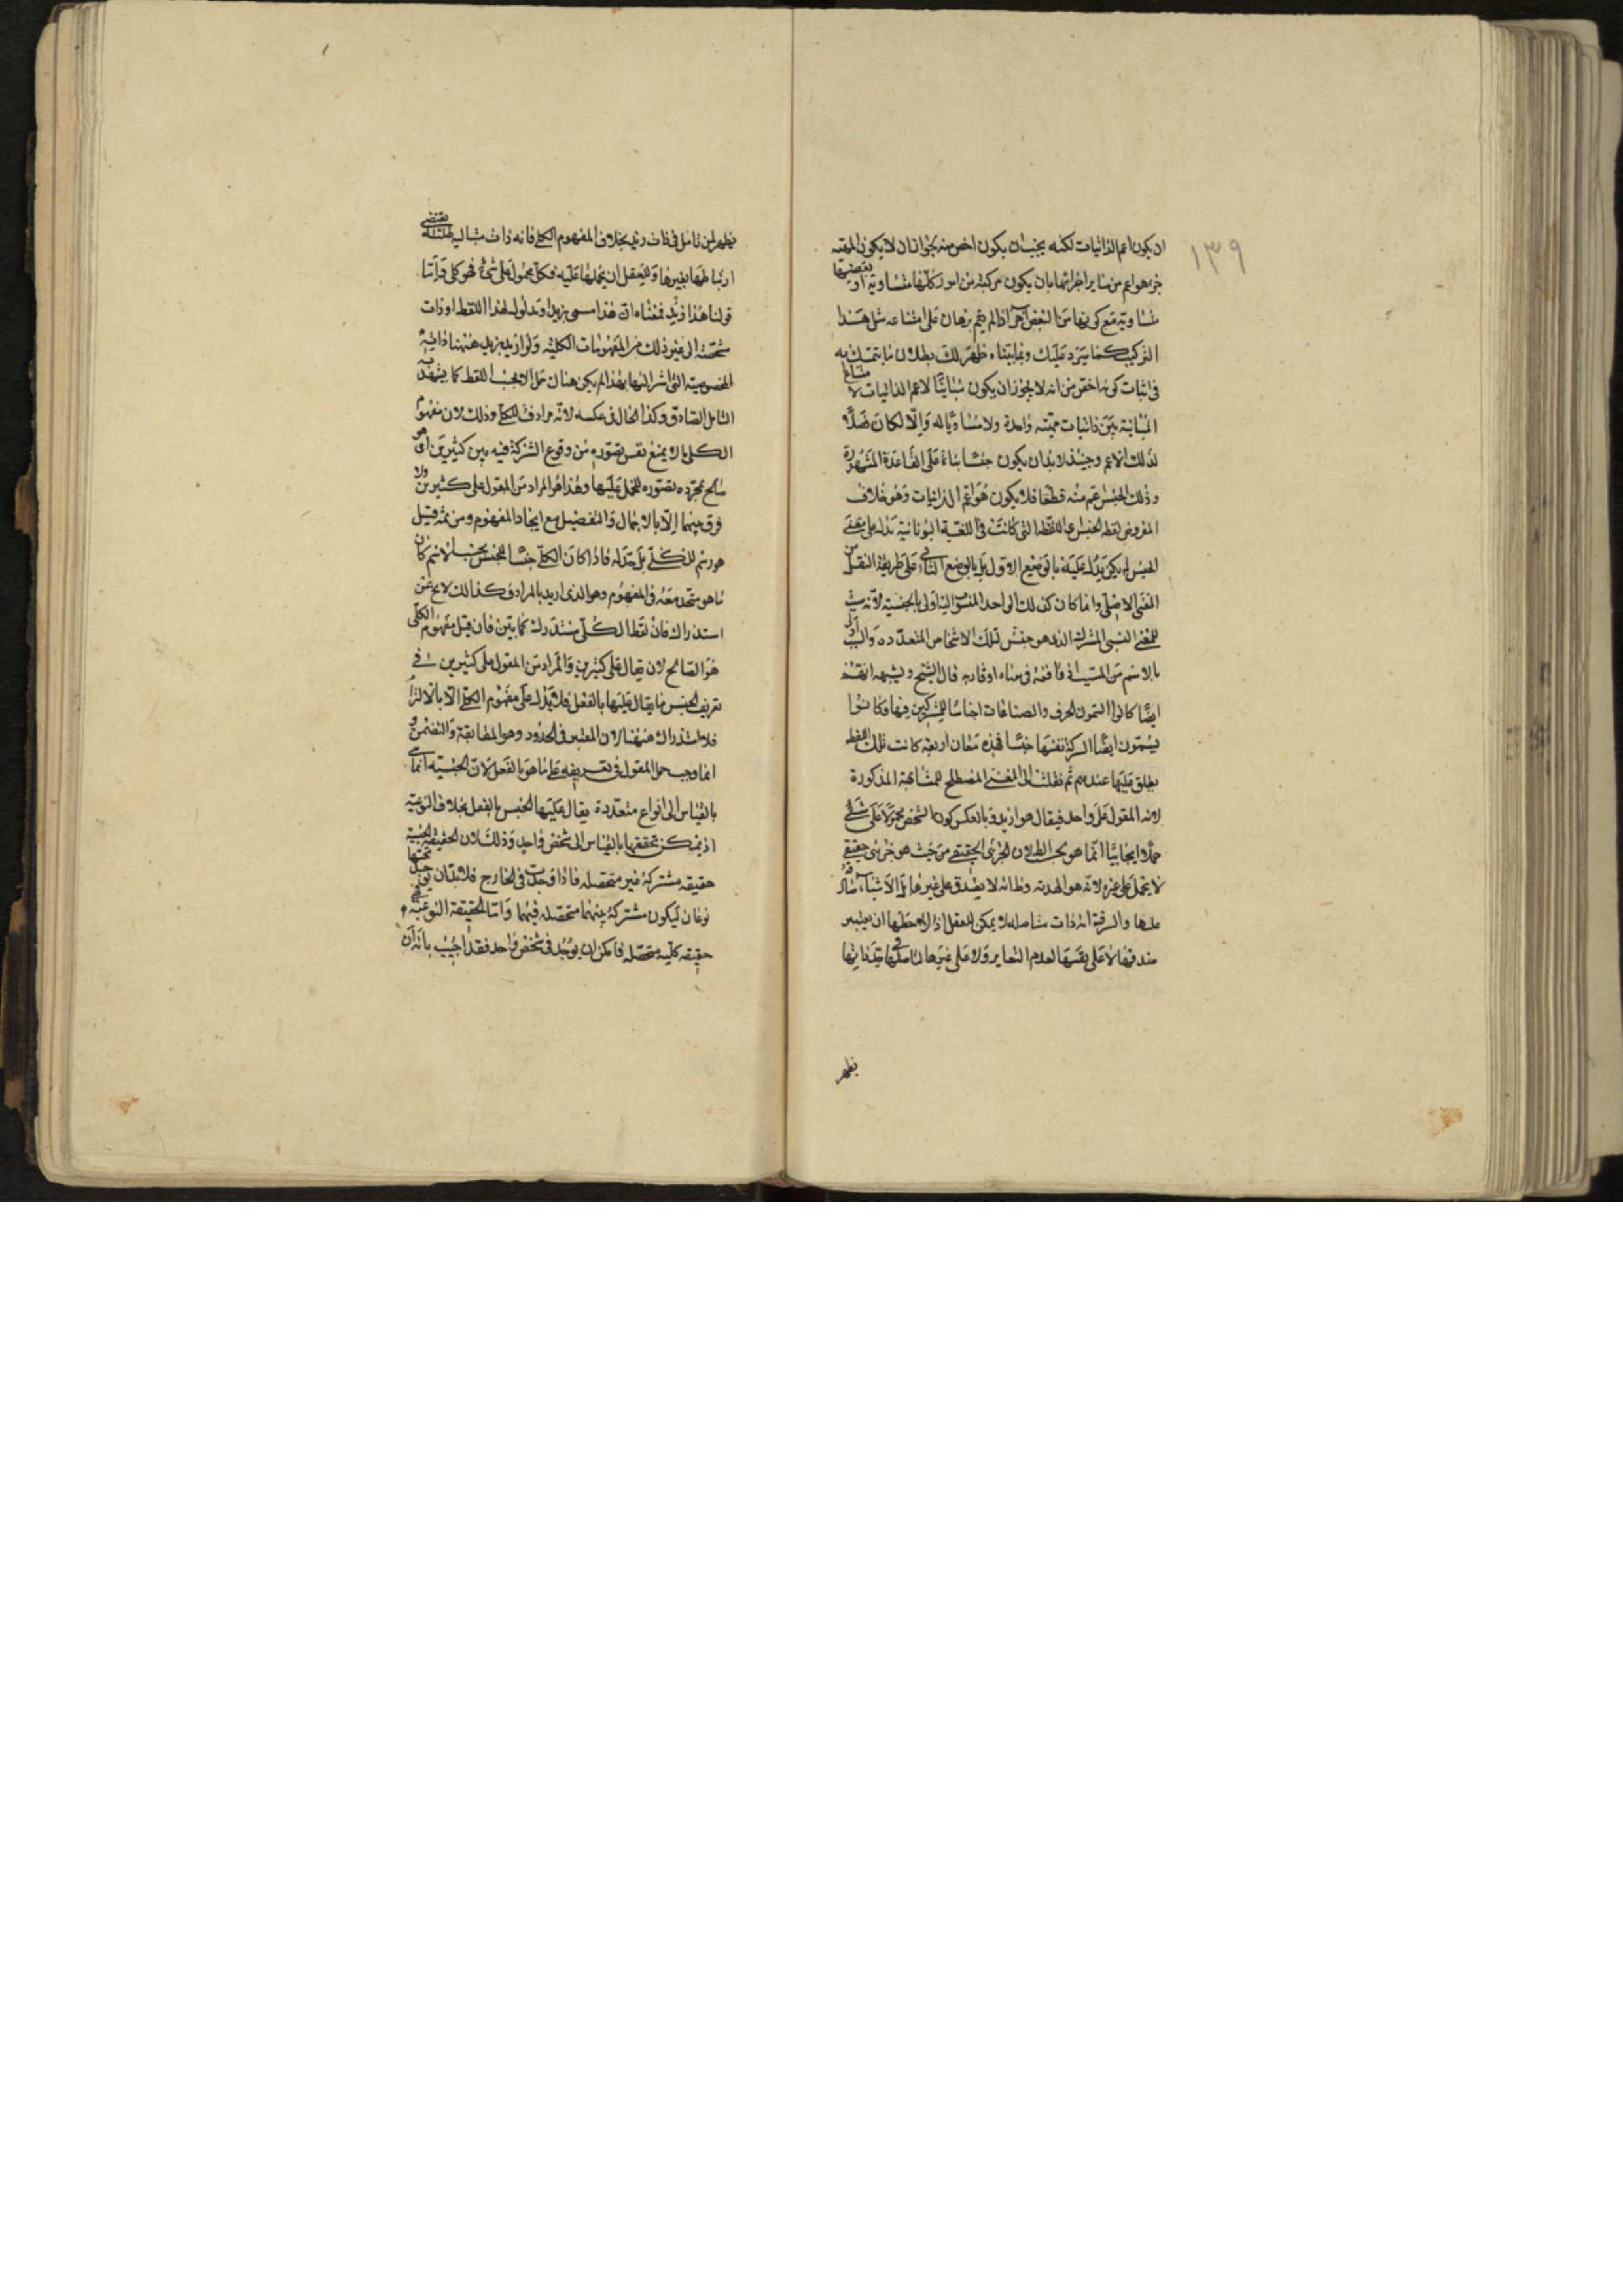 ١٣٩
ان يكون اعم الذاتيات لكنه يجب ان يكون اخص منه لجواز ان لا يكون للمهية
جزء هو اعم من سائر اجزائها بان يكون مركبة من امور كلها متساوية او بعضها
متساوية مع كونها من البعض اذا لم يقم برهان على امتناعه مثل هذا
التركيب كما سيرد عليك وبما بيناه ظهر لك بطلان ما يتمسك به
في اثبات كونه اخص من انه لا يجوز ان يكون مباينا لاعم الذاتيات لامتناع
المباينة بين ذاتيات مهية واحدة ولا مساويا له والا لكان فصلا
لذلك الاعم وحينئذ لا بد ان يكون جنسا بناء على القاعدة المشهورة
وذلك الجنس اعم منه قطعا فلا يكون هو اعم الذاتيات وهو خلاف
المفروض لفظ الجنس اللفظة التي كانت في اللغة اليونانية تدل على معنى
الجنس لم يكن يدل عليه بالوضع الاول بل بالوضع الثاني على طريقة النقل من
المعنى الاصلي وانما كان كذلك الى احد المنسوب اليه اولى بالجنسية لانه سبب
للمعنى النسبي المشترك الذي هو جنس لتلك الاشخاص المتعددة والسبب اولى
بالاسم من المسبب اذا وافقه في معناه او قاربه قال الشيخ ويشبه انهم
ايضا كانوا يسمون الحرف والصناعات اجناسا للمشتركين فيها وكانوا
يسمون ايضا الشركة نفسها جنسا فهذه معان اربعة كانت تلك اللفظة
يطلق عليها عندهم ثم نقلت الى المعنى المصطلح للمشابهة المذكورة
لانه المقول على واحد فيقال هو ازيد وبالعكس كون الشخص محمولا على شيء
حملا ايجابيا انما هو بحسب الظ لان الجزئي الحقيقي من حيث هو جزئي حقيقي
لا يحمل على غيره لانه هو الهذية وظ انه لا يصدق على غيرها بل الاشياء صادقة
عليها والسر فيه انه ذات متاصلة لا يمكن للعقل اذا لاحظها ان يعتبر
صدقها لا على نفسها لعدم التغاير ولا على غيرها لتاصلها في حد ذاتها
يظهر
يظهر لمن تامل في ذات زيد بخلاف المفهوم الكلي فانه ذات مثالية ظلية يقتضي
ارتباطها بغيرها وللعقل ان يحملها عليه فكل محمول على شيء فهو كلي واما
قولنا هذا زيد فمعناه ان هذا مسمى بزيد او مدلول لهذا اللفظ او ذات
مشخصة الى غير ذلك من المفهومات الكلية ولو اريد بزيد ههنا ذاته
المخصوصة التي اشير اليها بهذا لم يكن هناك حمل الا بحسب اللفظ كما يشهد به
التامل الصادق وكذا الحال في عكسه لانه مرادف للكلي وذلك لان مفهوم
الكلي ما لا يمنع نفس تصوره من وقوع الشركة فيه بين كثيرين اي هو
صالح بمجرد تصوره للحمل عليها وهذا هو المراد من المقول على كثيرين ولا
فرق بينهما الا بالاجمال والتفصيل مع اتحاد المفهوم ومن ثمه قيل
هو رسم للكلي بل حد له فاذا كان الكلي جنسا للجنس بحسب الاسم كان
ما هو متحد معه في المفهوم وهو الذي اريد بالمرادف كذلك لا يخ عن
استدراك فان لفظ الكلي مستدرك كما بين فان قيل مفهوم الكلي
هو الصالح لان يقال على كثيرين والمراد من المقول على كثيرين في
تعريف الجنس ما يقال عليها بالفعل فلا يدل على مفهوم الكلي الا بالالتزام
فلا استدراك ههنا لان المعتبر في الحدود وهو المطابقة والتضمن و
انما وجب حمل المقول في تعريفه على ما هو بالفعل لان الجنسية انما هي
بالقياس الى انواع متعددة يقال عليها الجنس بالفعل بخلاف النوعية
اذ يمكن تحققها بالقياس الى شخص واحد وذلك لان الحقيقة الجنسية
حقيقة مشتركة غير متحصلة فاذا وجدت في الخارج فلا بد ان يوجد تحتها
نوعان ليكون مشتركة بينهما متحصلة فيهما واما الحقيقة النوعية فهي
حقيقة كلية متحصلة فامكن ان يوجد في شخص واحد فقد اجيب بانه ان